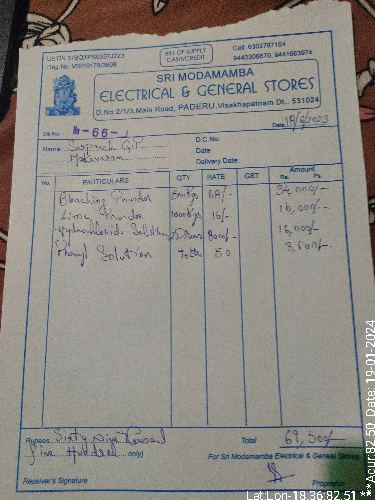 GSTIN 37BQXPB0337J2Z3
BILL OF SUPPLY
CASH/CREDIT
Cell: 6302787154
9440306870, 9441663974
SRI MODAMAMBA
ELECTRICAL & GENERAL STORES
D.No. 2/1/3, Main Road, PADERU, Visakhapatnam Dt., 531024
Bill No. 66
Date 18/6/2023
Name
D.C.No:
Date:
Delivery Date:
No. PARTICULARS QTY RATE GST Amount
Rs. Ps.
Bleaching Powder 500Kgs 68/- 34,000/-
Lime Powder 1000Kgs 16/- 16,000/-
Solution 8000/- 16,000/-
Phenyl Solution 70 50 3,500/-
Rupees Sixty Nine Thousand
Five Hundred only)
Total 69,500/-
For Sri Modamamba Electrical & General Stores
Receiver's Signature
Proprietor
Lat:Lon-18.36:82.51 ***Acur:82.50 Date: 19-01-2024